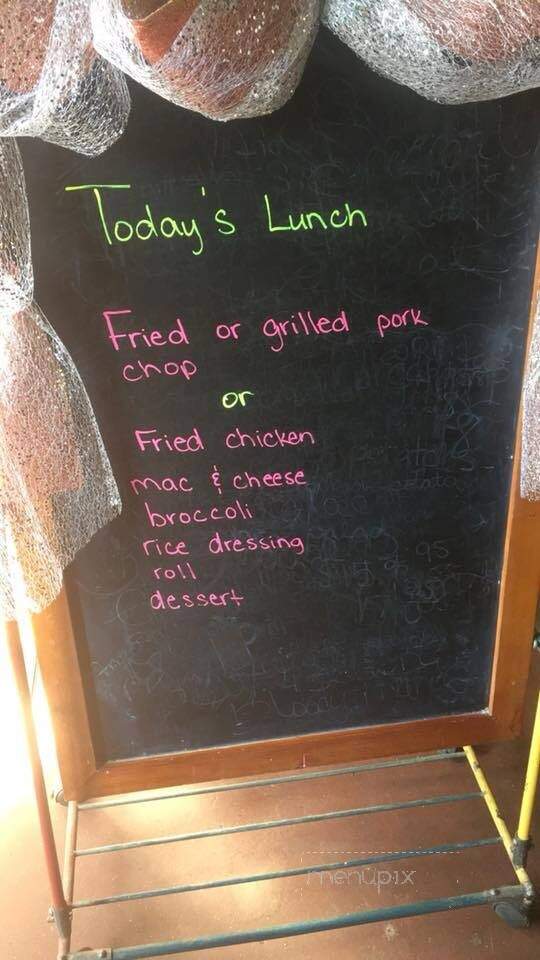 Today's Lunch
Fried or grilled pork
chop
or
Fried chicken
mac & cheese
broccoli
rice dressing
roll
dessert
menupix